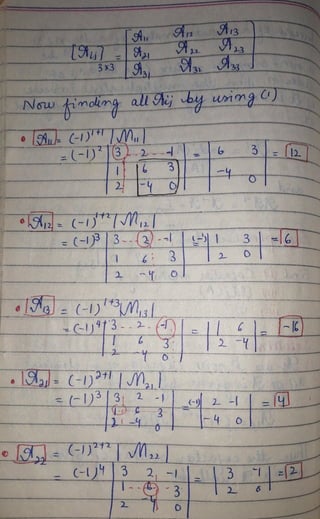 [Aij]3×3 = [A11 A12 A13
A21 A22 A23
A31 A32 A33]
Now finding all Aij by using (1)
• A11 = (-1)^1+1 |M11|
= (-1)^2 |3 2 -1
1 6 3
2 -4 0| = |6 3
-4 0| = 12
• A12 = (-1)^1+2 |M12|
= (-1)^3 |3 2 -1
1 6 3
2 -4 0| = (-1) |1 3
2 0| = 6
• A13 = (-1)^1+3 |M13|
= (-1)^4 |3 2 -1
1 6 3
2 -4 0| = |1 6
2 -4| = -16
• A21 = (-1)^2+1 |M21|
= (-1)^3 |3 2 -1
1 6 3
2 -4 0| = (-1) |2 -1
-4 0| = 4
• A22 = (-1)^2+2 |M22|
= (-1)^4 |3 2 -1
1 6 3
2 -4 0| = |3 -1
2 0| = 2